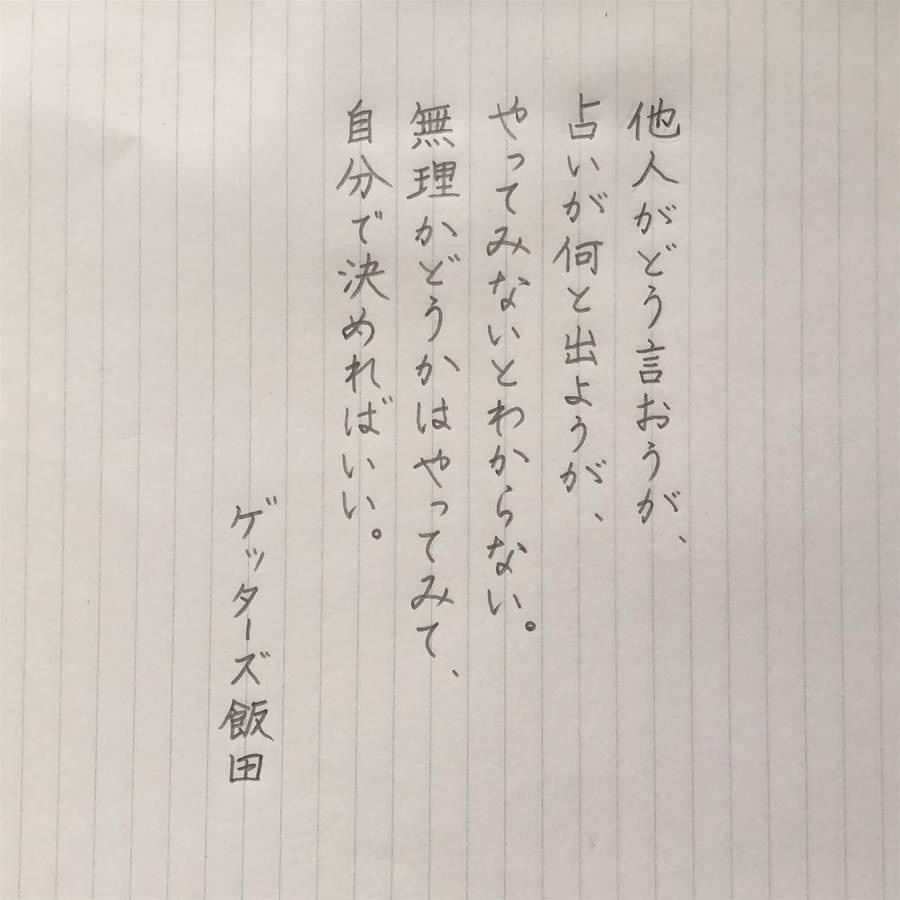 他人がどう言おうが、
占いが何と出ようが、
やってみないとわからない。
無理かどうかはやってみて、
自分で決めればいい。
ゲッターズ飯田